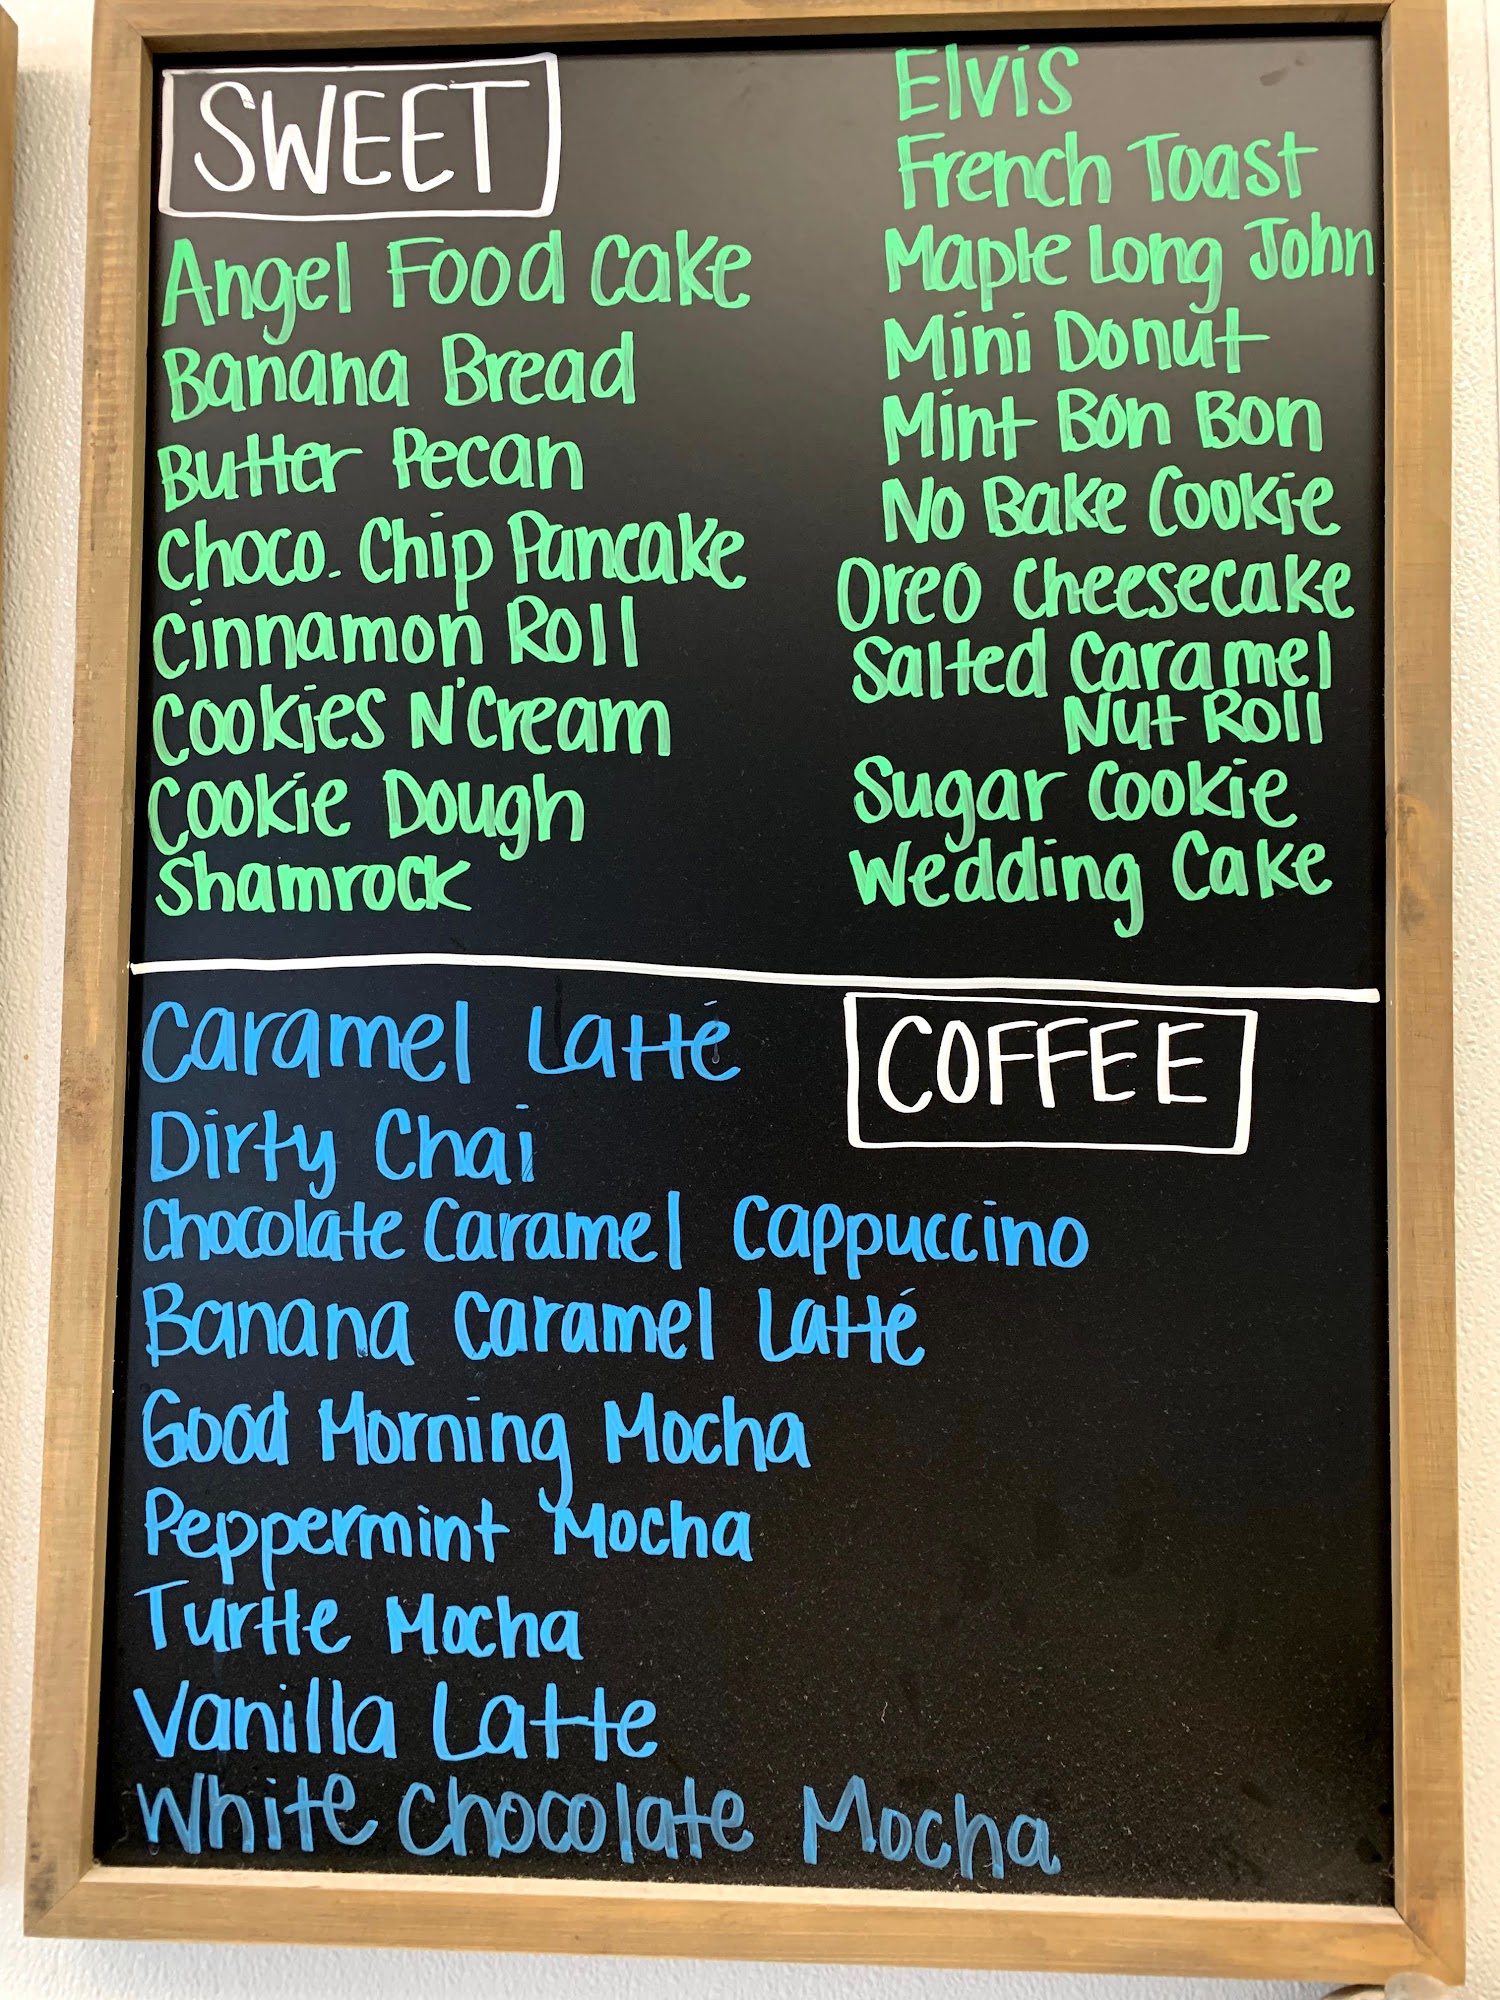 SWEET
Angel Food Cake
Banana Bread
Butter Pecan
Choco. Chip Pancake
Cinnamon Roll
Cookies N' Cream
Cookie Dough
Shamrock
Elvis
French Toast
Maple Long John
Mini Donut
Mint Bon Bon
No Bake Cookie
Oreo Cheesecake
Salted Caramel
Nut Roll
Sugar Cookie
Wedding Cake
COFFEE
Caramel Latté
Dirty Chai
Chocolate Caramel Cappuccino
Banana Caramel Latté
Good Morning Mocha
Peppermint Mocha
Turtle Mocha
Vanilla Latte
White Chocolate Mocha